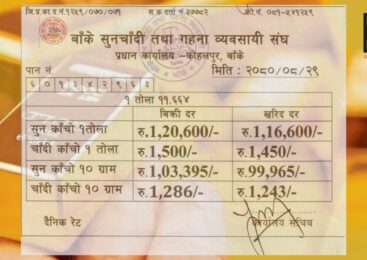 जि.प्र.का.द.नं.१२९/०७०/०७१ स.क.दर्ता नं.३७७८२ फो.नं. ०८१-५४१२५९
बाँके सुनचाँदी तथा गहना व्यवसायी संघ
प्रधान कार्यालय -कोहलपुर, बाँके
पान नं. मिति : २०८०/०८/२९
६०१३४२९६३
१ तोला ११.६६४
बिक्री दर खरिद दर
सुन काँचो १तोला रु.1,20,600/- रु.1,16,600/-
चाँदी काँचो १ तोला रु.1,500/- रु.1,450/-
सुन काँचो १० ग्राम रु.1,03,395/- रु.99,965/-
चाँदी काँचो १० ग्राम रु.1,286/- रु.1,243/-
दैनिक रेट कार्यालय सचिव